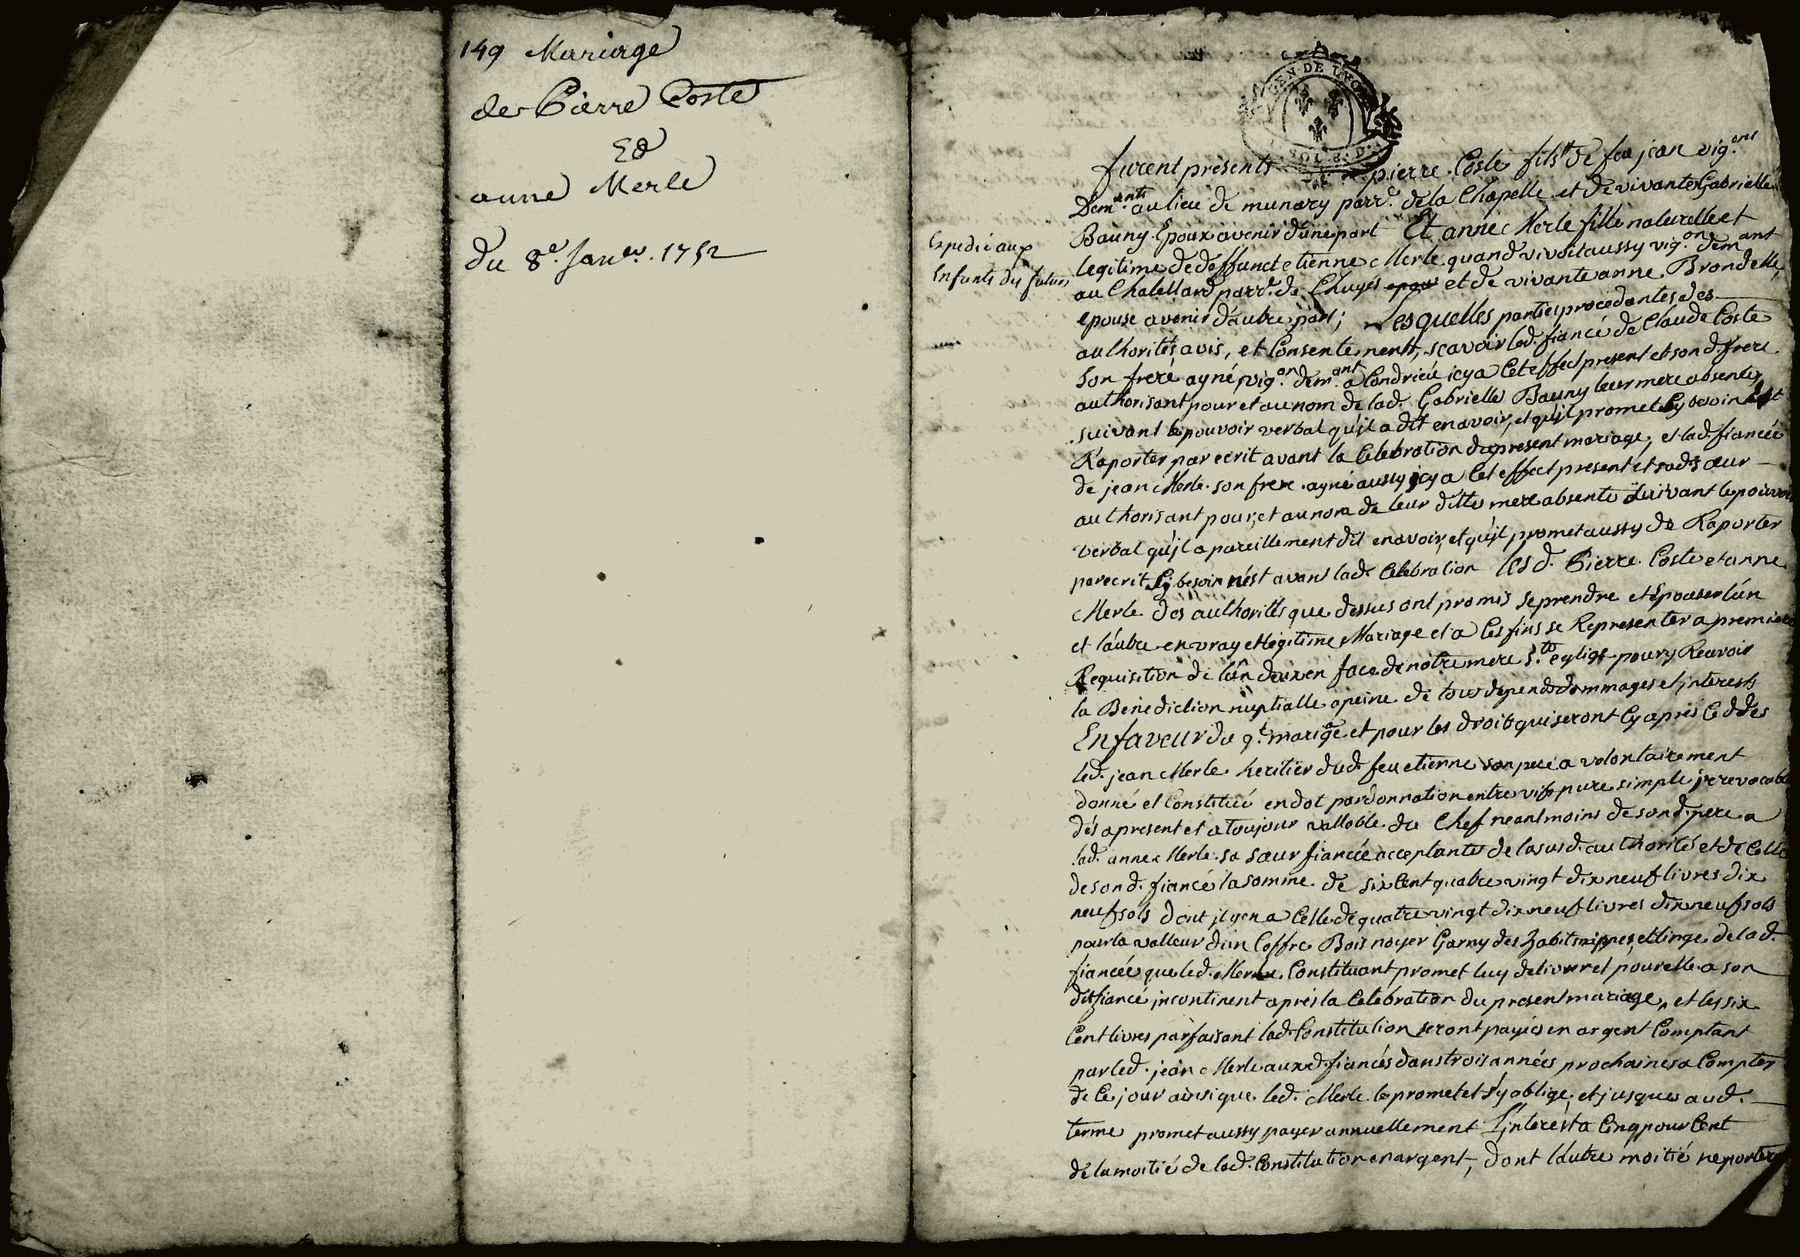 149 Mariage
de Pierre Coste
Et
anne Merle
Du 8e. Janer. 1752
Expedié aux
Enfants des futurs
GEN. DE LYO
SOL 8. D.
furent presents pierre Coste fils de feu jean vig.on
Dem.ant au lieu de munary parr.e de la Chapelle et de vivante Gabrielle
Bauny Epoux avenir d'une part Et anne Merle fille naturelle et
legitime de deffunct etienne Merle quand vivoit aussy vig.on dem.ant
au Chatellard parr.e de Chuyés et de vivante anne Brondelle
epouse avenir d'autre part; Lesquelles parties procedantes des
authorités, avis, et Consentements, scavoir led. fiancé de Claude Coste
Son frere ayné, vig.on dem.ant a Condrieu icy a Cet effect present et son d. frere
authorisant pour et au nom de lad. Gabrielle Bauny leur mere absente
suivant le pouvoir verbal qu'il a dit en avoir, et qu'il promet sy besoin est
Raporter par ecrit avant la Celebration du present mariage, et lad. fiancée
de jean Merle son frere ayné aussy jcy a Cet effect present et sad. sœur
authorisant pour, et au nom de leur ditte mere absente suivant le pouvoir
verbal qu'il a pareillement dit en avoir, et qu'il promet aussy de Raporter
par ecrit sy besoin n'est avant lad. Celebration les d. Pierre Coste et anne
Merle des authorités que dessus ont promis se prendre et Epouser l'un
et l'autre en vray et legitime Mariage et a Ces fins se Representer a premiere
Requisition de l'un d'eux en face de notre mere S.te eglise pour y Recevoir
la Benediction nuptialle a peine de tous depends dommages et jnterests
En faveur du q.t mariage et pour les droits qui seront Cy apres Ceddés
led. jean Merle heritier dud. feu etienne son pere a volontairement
donné et Constitué en dot par donnation entre vifs pure simple jrrevocable
dés a present et a toujour vallable du Chef neantmoins de son d. pere a
lad. anne Merle sa sœur fiancée acceptante de la sus d. authorité et de Celle
de son d. fiancé la somme de six Cent quatre vingt dix neuf livres dix
neuf sols dont jl y en a Celle de quatre vingt dix neuf livres dix neuf sols
pour la valleur d'un Coffre Bois noyer Garny des habits nippes, et linge de lad.
fiancée que led. Merle Constituant promet luy delivrer et pour elle a son
dit fiancé jncontinent aprés la Celebration du present mariage, et les six
Cent livres parfaisant lad. Constitution seront payées en argent Comptant
par led. jean Merle aux d. fiancés dans trois années prochaines a Compter
de Ce jour ainsi que led. Merle le promet et s'y oblige, et jusques aud.
terme promet aussy payer annuellement L'jnterest a Cinq pour Cent
de la moitié de lad. Constitution en argent, dont l'autre moitié ne portera